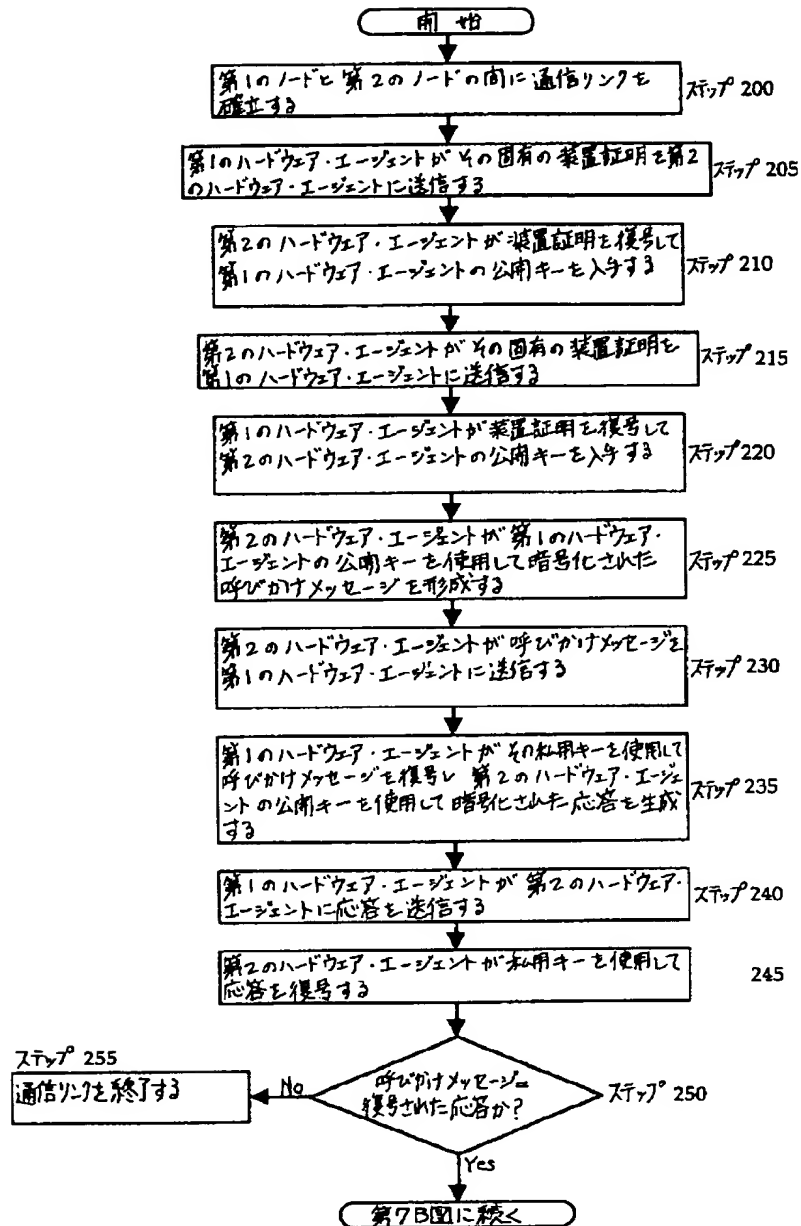 開始
第1のノードと第2のノードの間に通信リンクを
確立する
ステップ 200
第1のハードウェア・エージェントがその固有の装置証明を第2
のハードウェア・エージェントに送信する
ステップ 205
第2のハードウェア・エージェントが装置証明を復号して
第1のハードウェア・エージェントの公開キーを入手する
ステップ 210
第2のハードウェア・エージェントがその固有の装置証明を
第1のハードウェア・エージェントに送信する
ステップ 215
第1のハードウェア・エージェントが装置証明を復号して
第2のハードウェア・エージェントの公開キーを入手する
ステップ 220
第2のハードウェア・エージェントが第1のハードウェア・
エージェントの公開キーを使用して暗号化された
呼びかけメッセージを形成する
ステップ 225
第2のハードウェア・エージェントが呼びかけメッセージを
第1のハードウェア・エージェントに送信する
ステップ 230
第1のハードウェア・エージェントがその私用キーを使用して
呼びかけメッセージを復号し 第2のハードウェア・エージェ
ントの公開キーを使用して暗号化された応答を生成
する
ステップ 235
第1のハードウェア・エージェントが第2のハードウェア・
エージェントに応答を送信する
ステップ 240
第2のハードウェア・エージェントが私用キーを使用して
応答を復号する
245
呼びかけメッセージ=
復号された応答か?
ステップ 250
No
ステップ 255
通信リンクを終了する
Yes
第7B図に続く